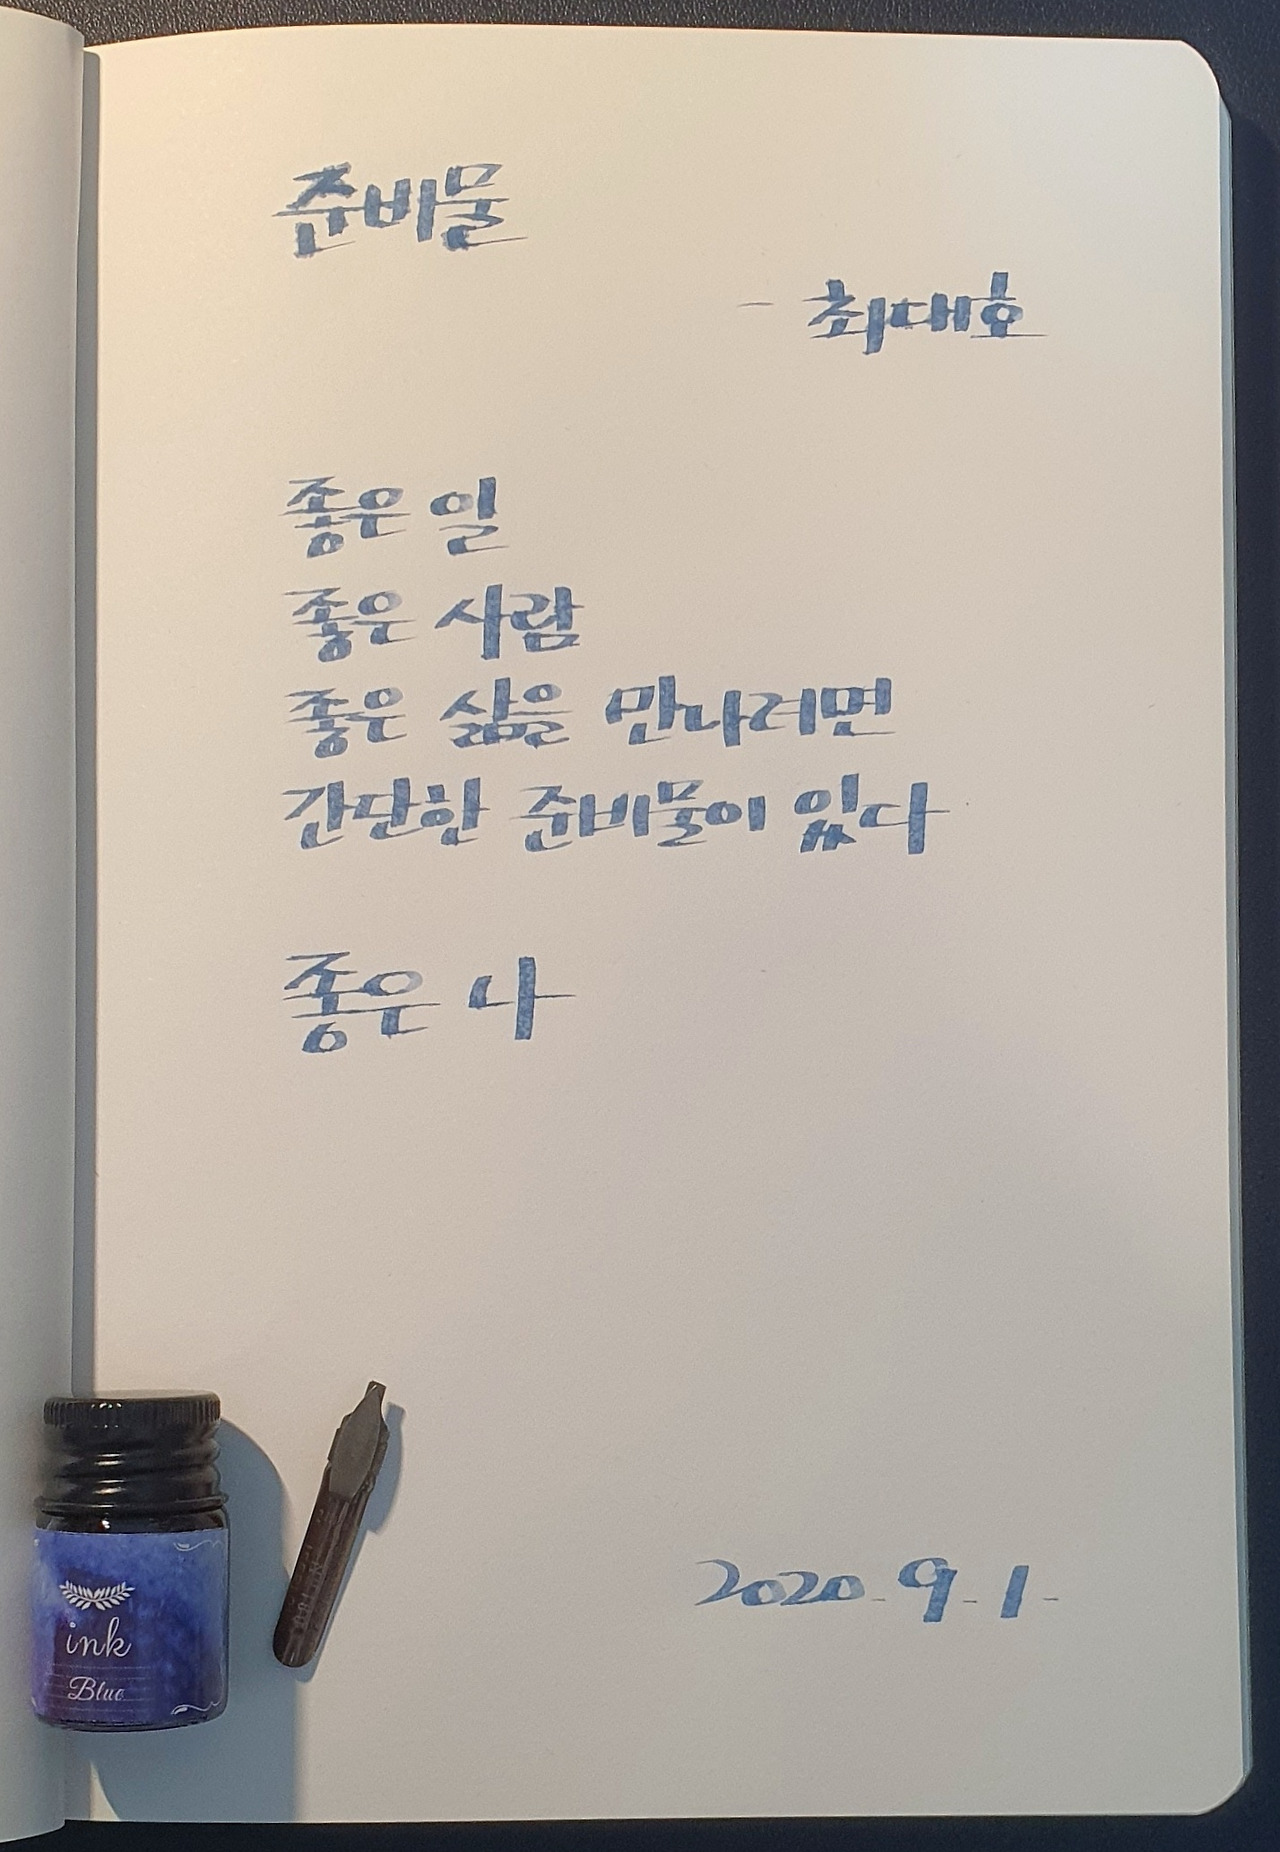 준비물
- 최대호
좋은 일
좋은 사람
좋은 삶을 만나려면
간단한 준비물이 있다
좋은 나
ink
Blue
2020. 9. 1.